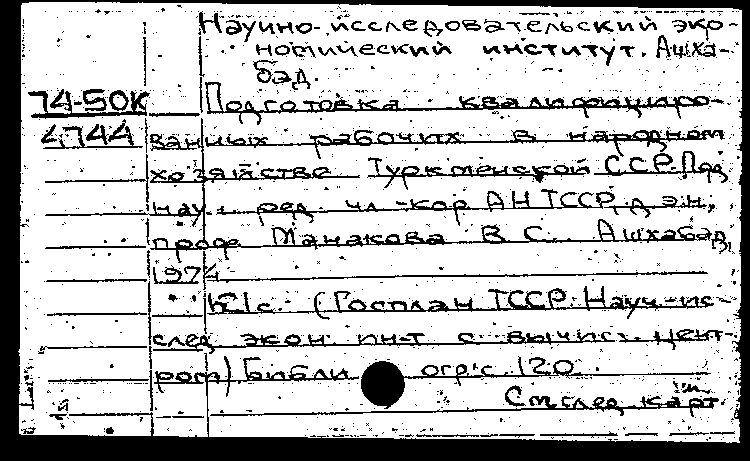 Научно-исследовательский эко-
номический институт. Ашха-
бад.
74-50К Подготовка квалифициро-
4744 ванных рабочих в народном
хозяйстве Туркменской ССР. Под
науч. ред. чл.-кор. АН ТССР, д.э.н.,
проф. Манакова В.С. Ашхабад,
1974.
121 с. (Госплан ТССР. Науч.-ис-
след. экон. ин-т с вычисл. цент-
ром) Библи огр: с. 120.
См. след. карт.